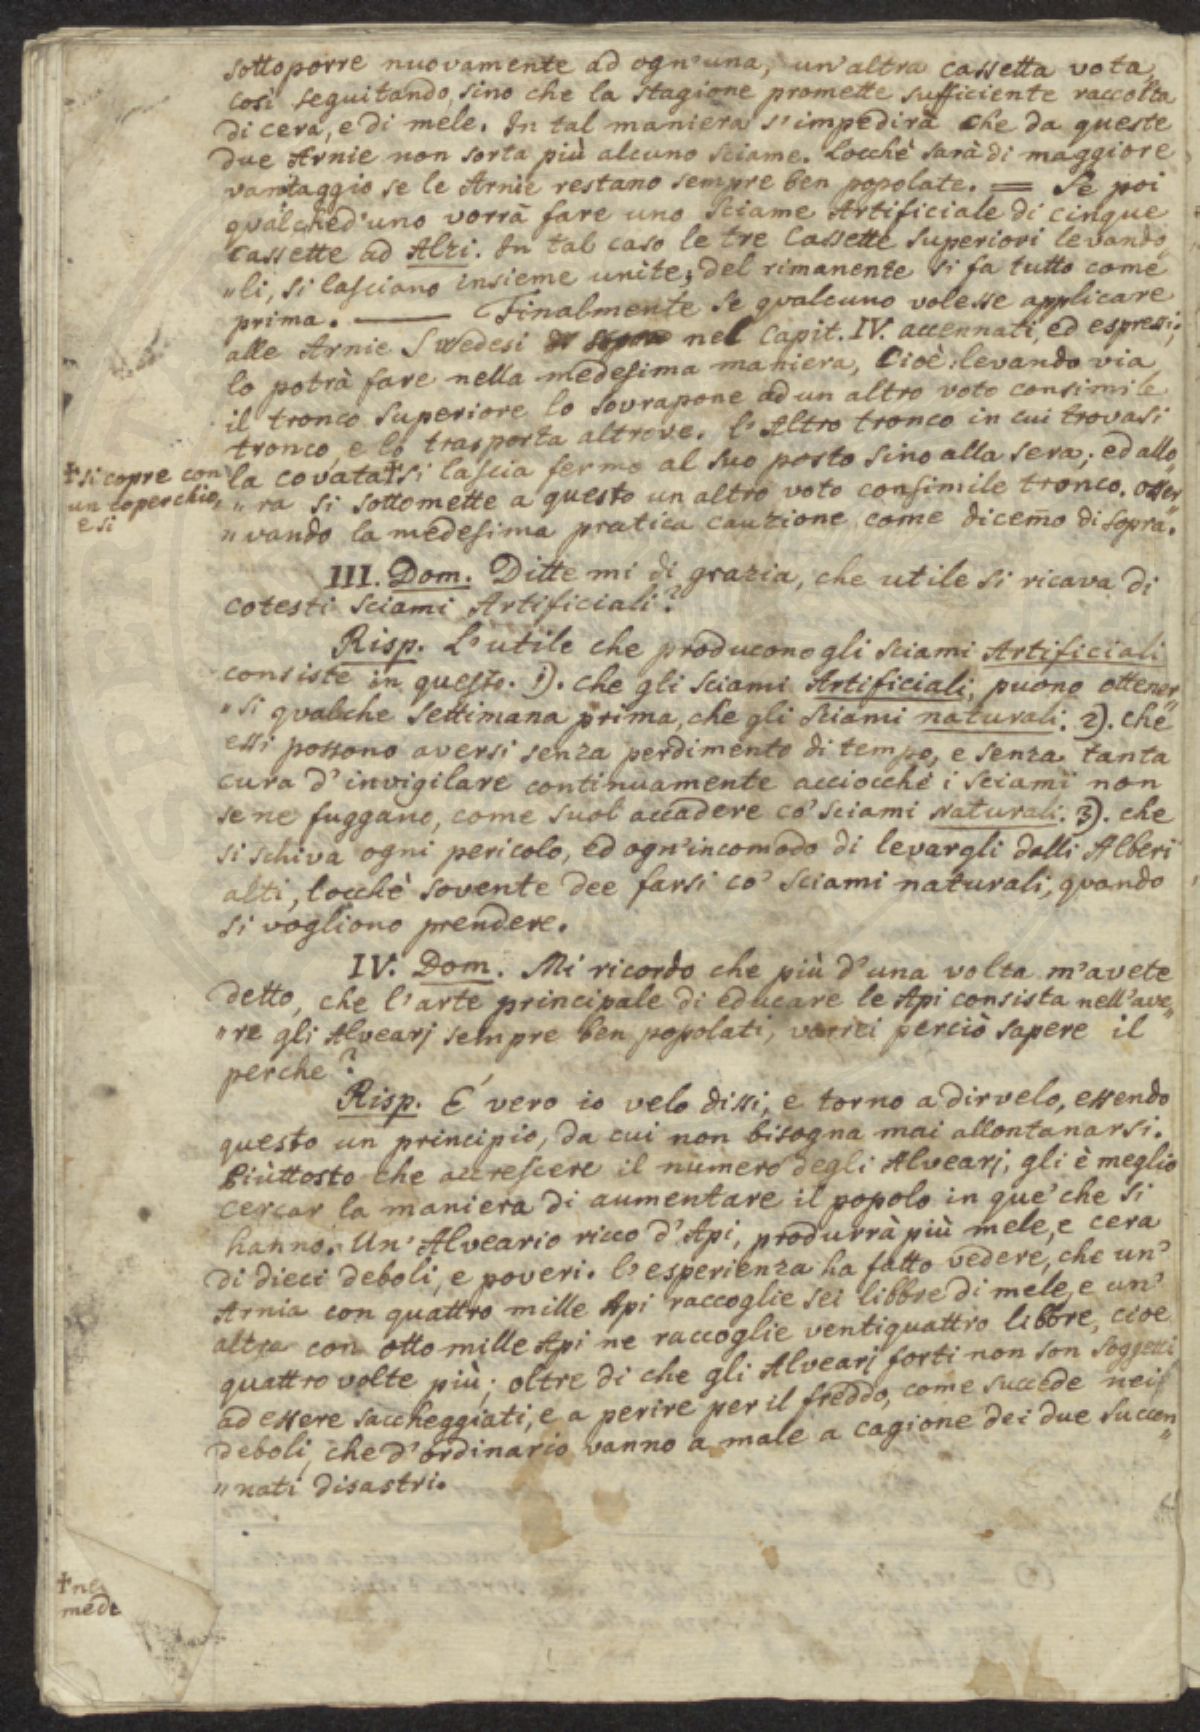 sottoporre nuovamente ad ogn'una, un'altra cassetta vota,
così seguitando, sino che la stagione promette sufficiente raccolta
di cera, e di mele. In tal maniera s'impedirà che da queste
due Arnie non sorta più alcuno sciame. Locchè sarà di maggiore
vantaggio se le Arnie restano sempre ben popolate. = Se poi
qualched'uno vorrà fare uno Sciame Artificiale di cinque
Cassette ad Alzi. In tal caso le tre Cassette superiori levando
„li, si lasciano insieme unite; del rimanente si fa tutto come
prima. — Finalmente se qualcuno volesse applicare
alle Arnie Swedesi nel Capit. IV. accennati, ed espressi;
lo potrà fare nella medesima maniera, Cioè: levando via
il tronco superiore lo sovrapone ad un altro voto consimile
tronco, e lo trasporta altrove. L'Altro tronco in cui trovasi
la covata + si lascia fermo al suo posto sino alla sera; ed allo
„ra si sottomette a questo un altro voto consimile tronco. Osser„
„vando la medesima pratica cauzione come dicem̄o di sopra.
+ si copre con
un coperchio,
e si
III. Dom. Ditte mi di grazia, che utile si ricava di
cotesti Sciami Artificiali?
Risp. L'utile che producono gli sciami Artificiali
consiste in questo. 1). che gli sciami Artificiali, puono ottener„
„si qualche settimana prima, che gli sciami naturali. 2). che
essi possono aversi senza perdimento di tempo, e senza tanta
cura d'invigilare continuamente acciocchè i sciami non
se ne fuggano, come suol accadere co' sciami Naturali. 3). che
si schiva ogni pericolo, ed ogn'incomodo di levargli dalli Alberi
alti, locchè sovente dee farsi co' sciami naturali, quando
si vogliono prendere.
IV. Dom. Mi ricordo che più d'una volta m'avete
detto, che l'arte principale di educare le Api consista nell'ave„
„re gli Alvearj sempre ben popolati, vorrei perciò sapere il
perche?
Risp. É vero io velo dissi, e torno a dirvelo, essendo
questo un principio, da cui non bisogna mai allontanarsi.
Piùttosto che accrescere il numero degli Alvearj, gli è meglio
cercar la maniera di aumentare il popolo in que' che si
hanno. Un' Alveario ricco d'Api, produrrà più mele, e cera
di dieci deboli, e poveri. L'esperienza ha fatto vedere, che un'
Arnia con quattro mille Api raccoglie sei libbre di mele, e un'
altra con otto mille Api ne raccoglie ventiquattro libbre, cioe
quattro volte più; oltre di che gli Alvearj forti non son soggetti
ad essere saccheggiati, e a perire per il freddo, come succede nei
deboli, che d'ordinario vanno a male a cagione dei due succen„
„nati disastri.
+ ne
mede